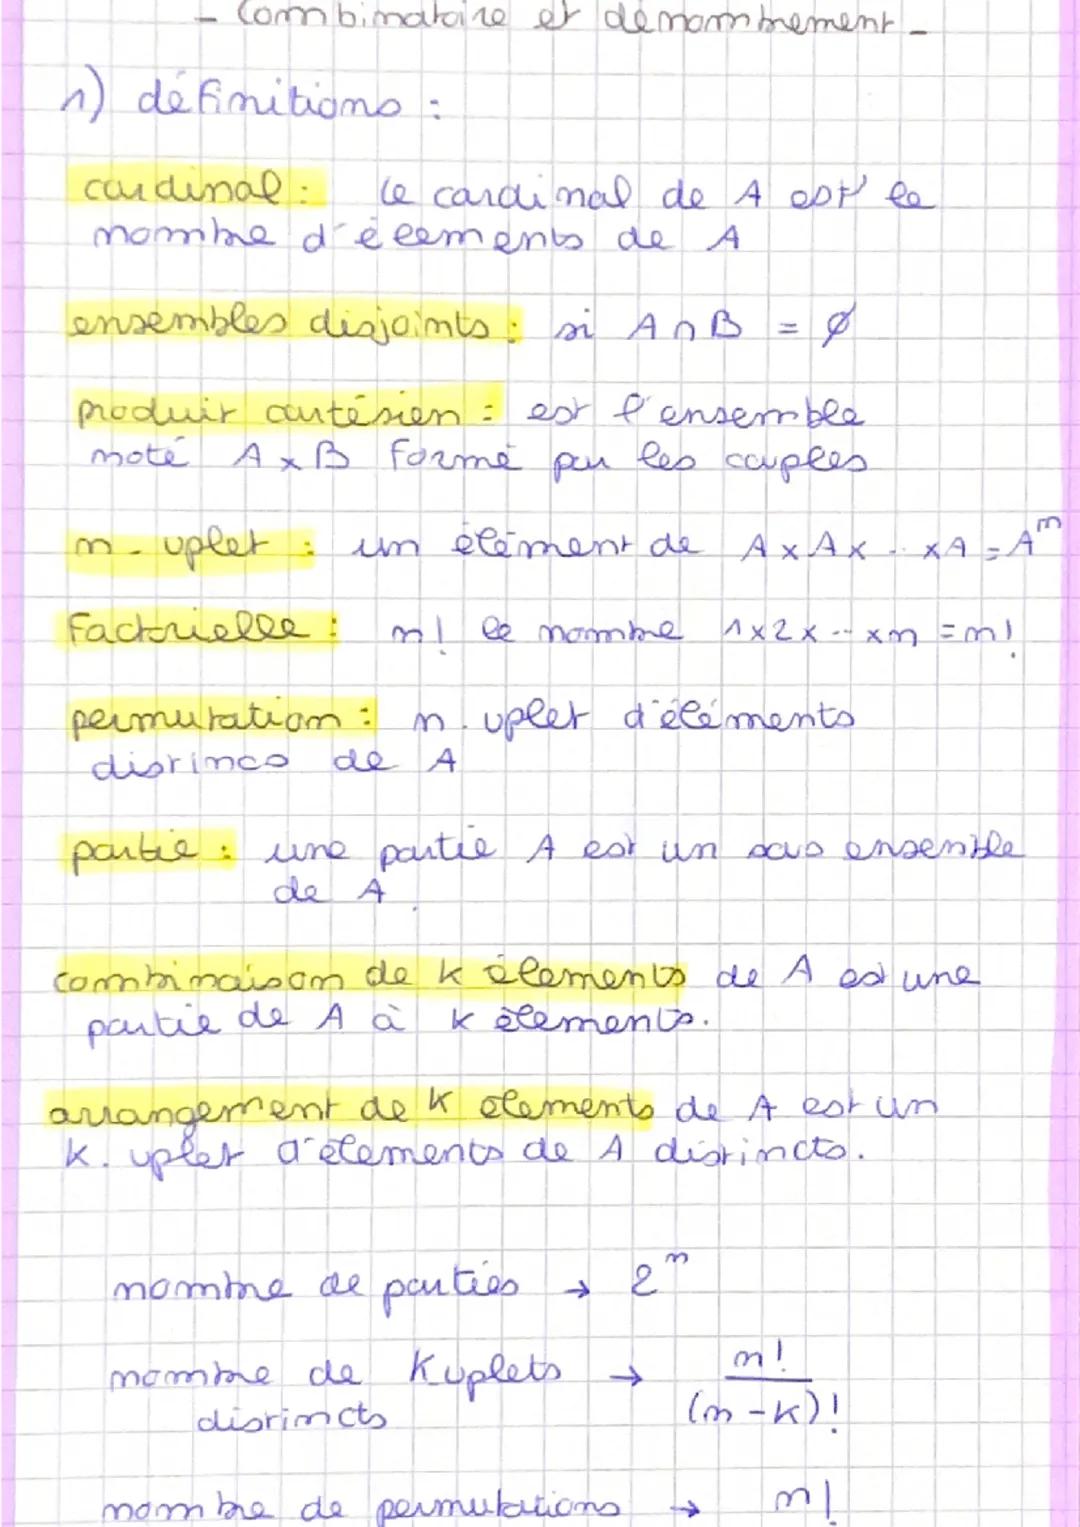 - Combinatoire et dénombrement -
1) définitions :
cardinal : le cardinal de A est le
nombre d'éléments de A
ensembles disjoints : si A ∩ B = ∅
produit cartésien : est l'ensemble
noté A × B formé par les couples
n-uplet : un élément de A × A × ... × A = Aⁿ
Factorielle : n! le nombre 1×2×...×n = n!
permutation : n.uplet d'éléments
distincs de A
partie : une partie A est un sous ensemble
de A
combinaison de k élements de A est une
partie de A à k élements.
arrangement de k élements de A est un
k.uplet d'élements de A distincts.
nombre de parties → 2ⁿ
nombre de Kuplets → n!/(n-k)!
distincts
nombre de permutations → n!